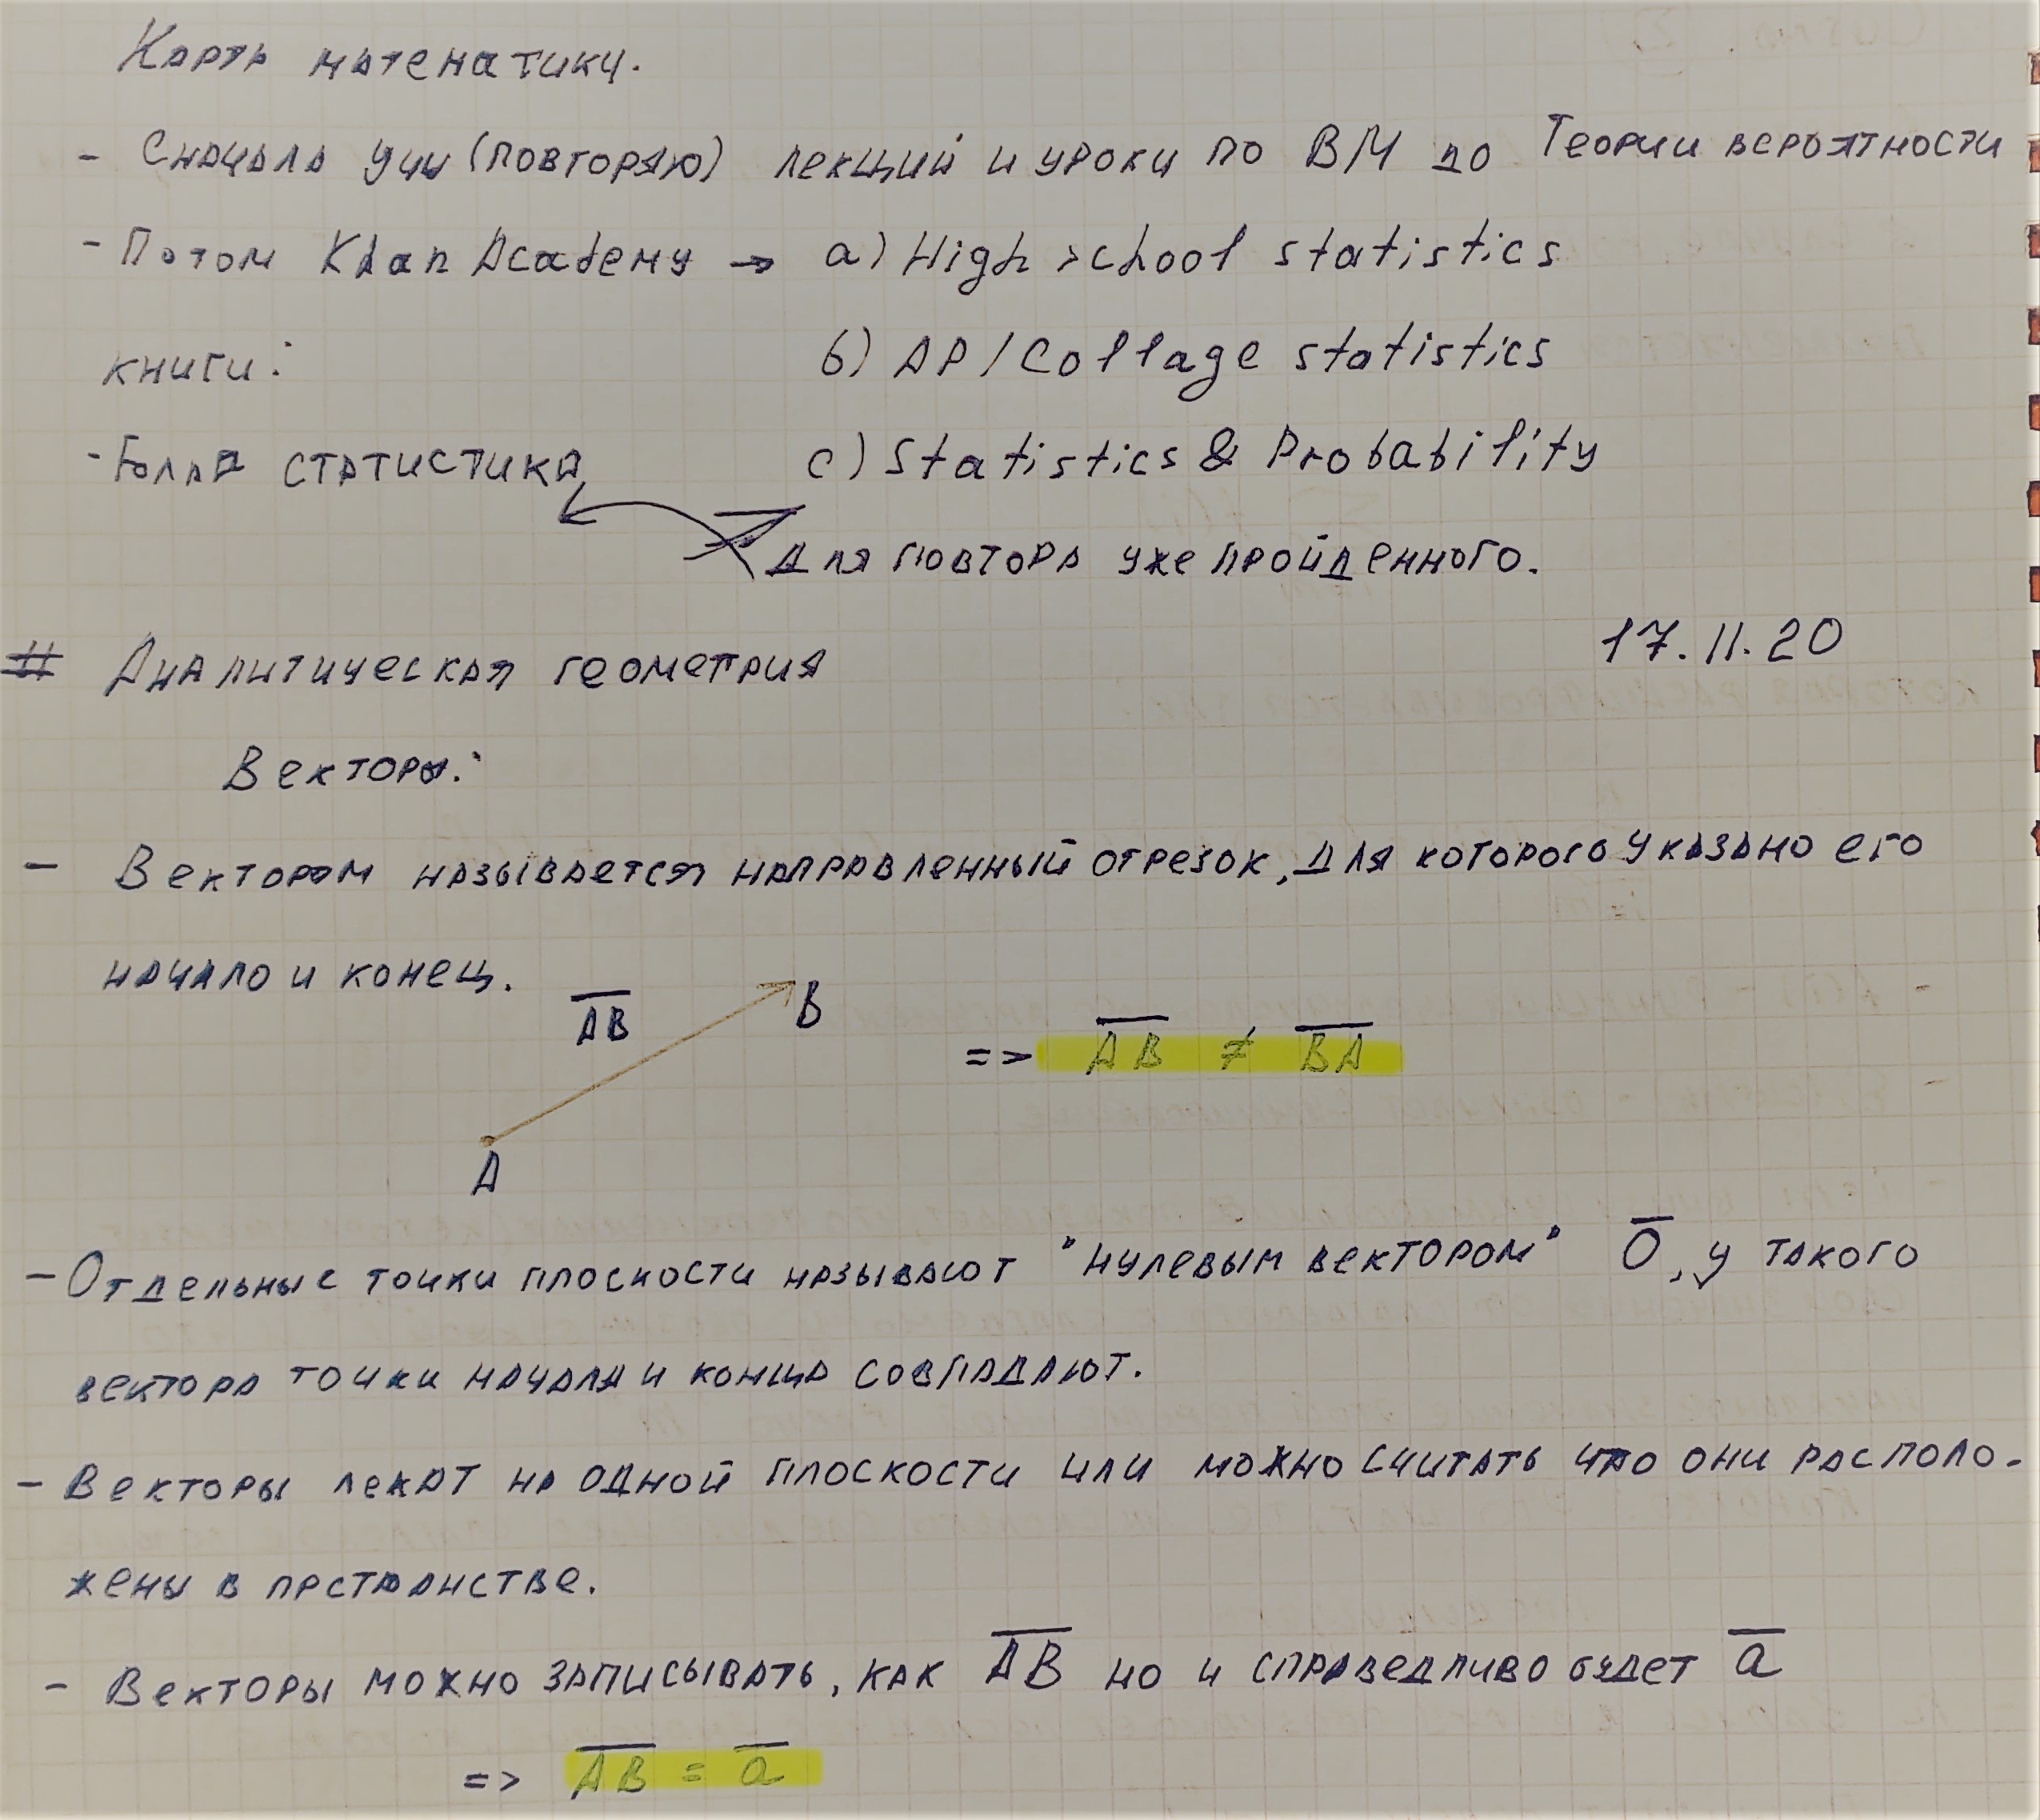 Карта математики.
- Сначала учу (повторяю) лекций и уроки по ВМ до Теории вероятности
- Потом Khan Academy → a) High school statistics
книги: b) AP/Collage statistics
- Голая статистика c) Statistics & Probability
Для повтора уже пройденного.
# Аналитическая геометрия 17.11.20
Векторы:
- Вектором называется направленный отрезок, для которого указано его
начало и конец.
AB B
=> AB ≠ BA
A
- Отдельные точки плоскости называют "нулевым вектором" 0, у такого
вектора точки начала и конца совпадают.
- Векторы лежат на одной плоскости или можно считать что они располо-
жены в прстранстве.
- Векторы можно записывать, как AB но и справедливо будет a
=> AB = a